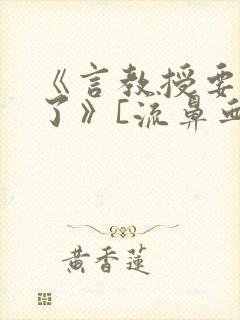 《言教授要
了》[流鼻血
黄香莲